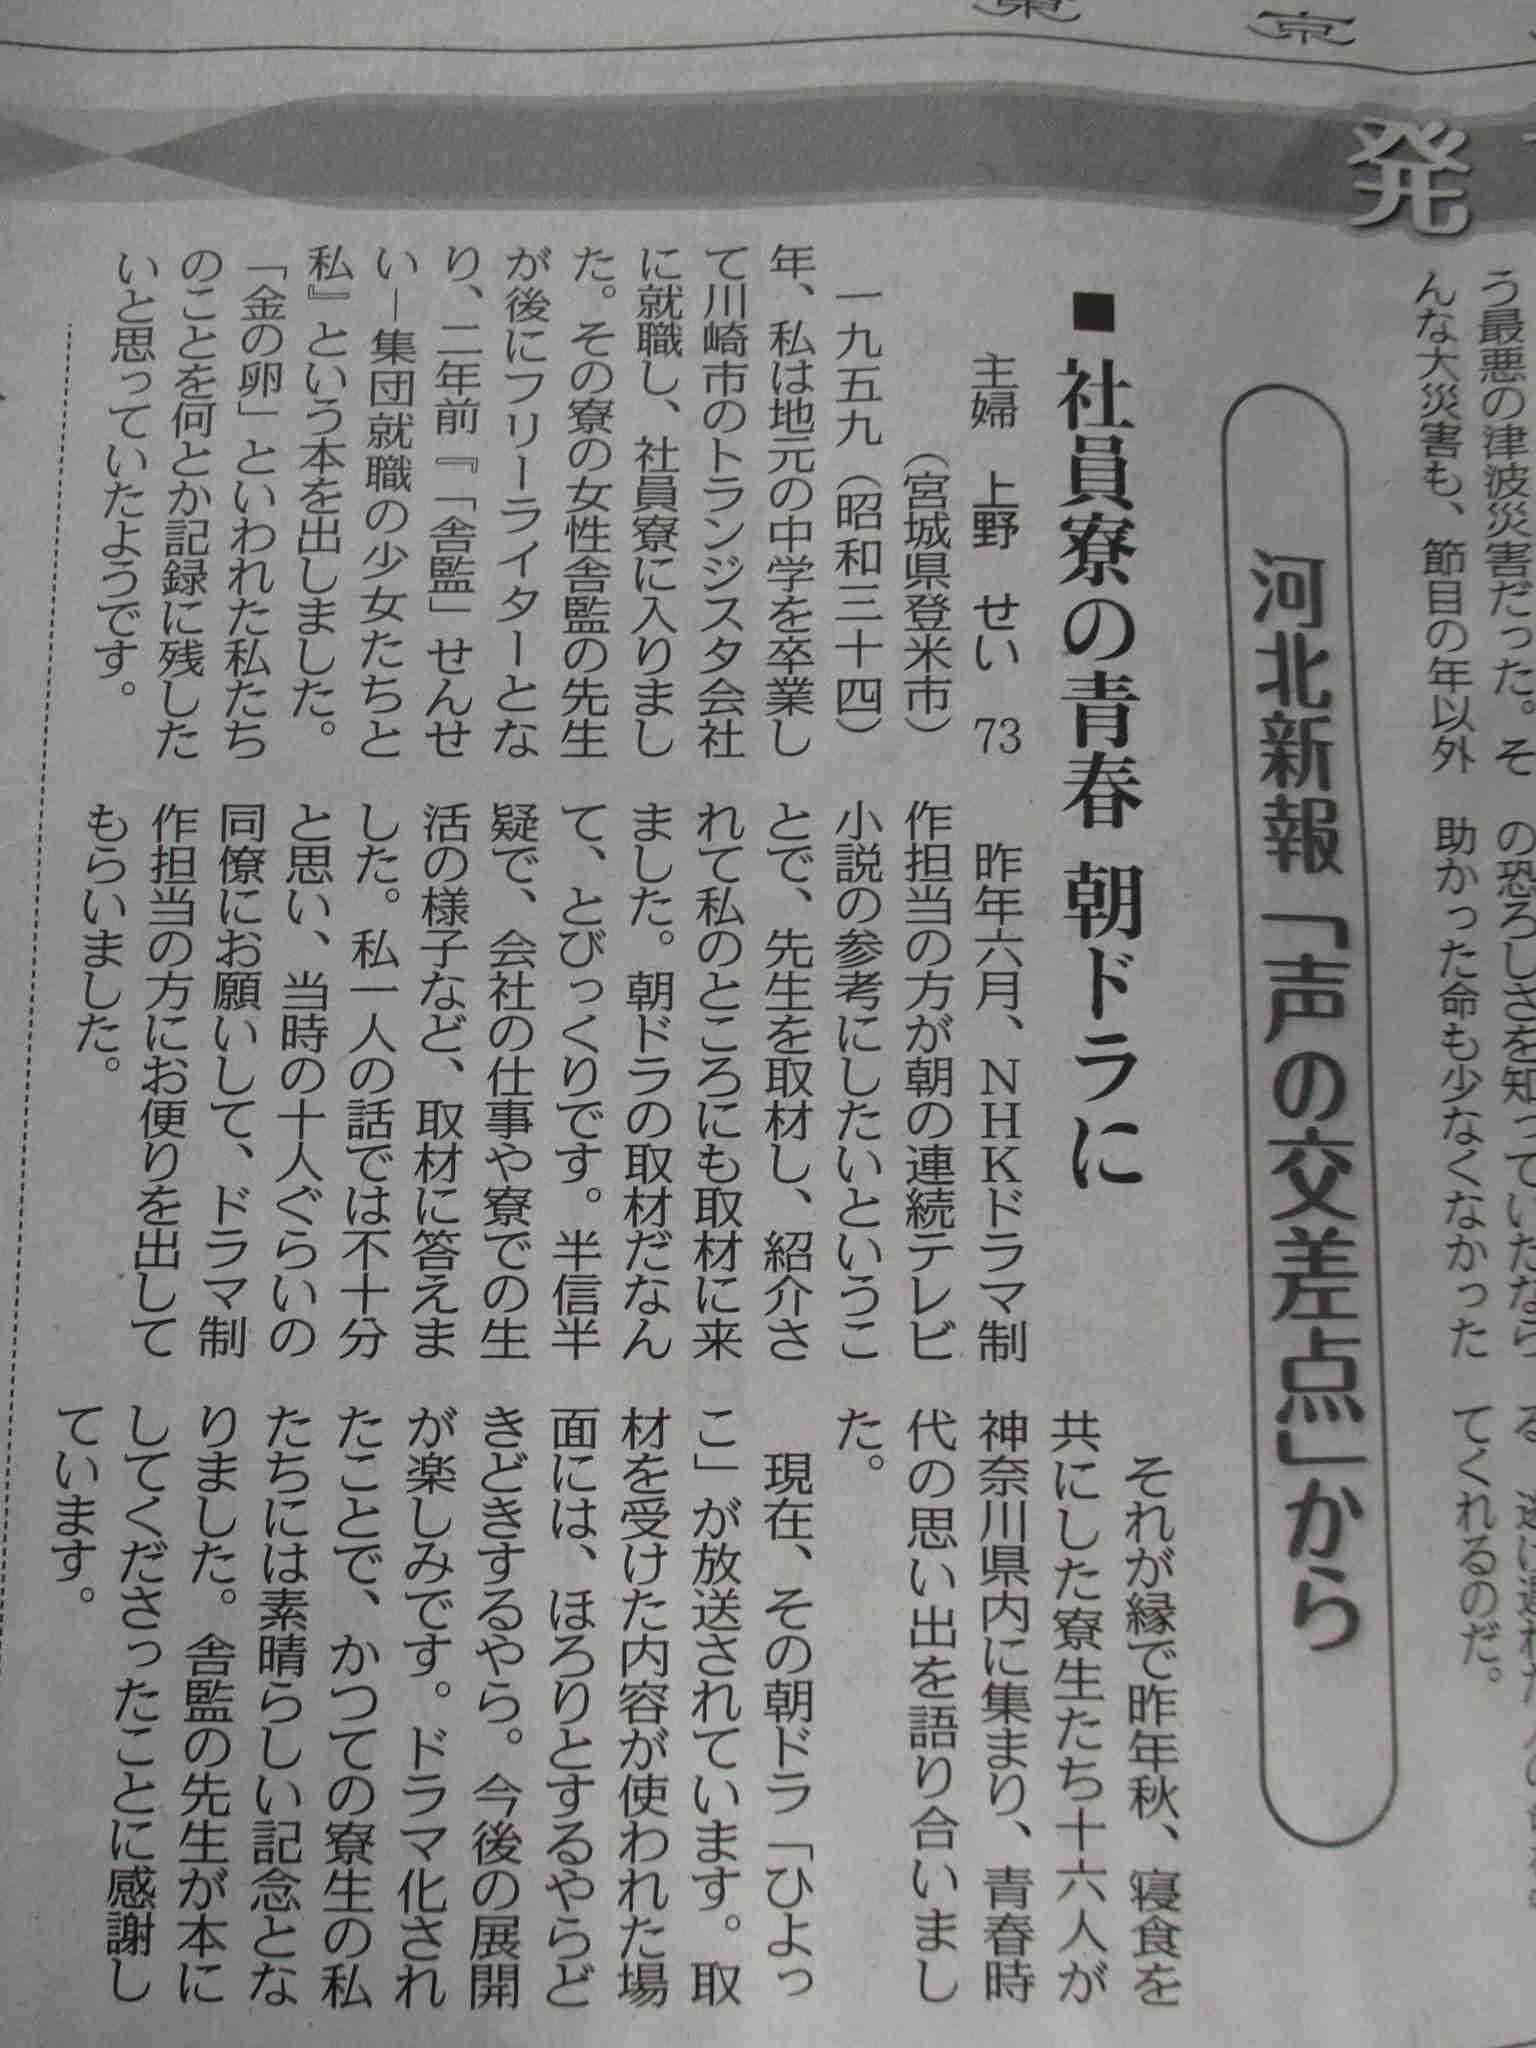 京
発
う最悪の津波災害だった。そ
んな大災害も、節目の年以外
の恐ろしさを知っていたなら
助かった命も少なくなかった
てくれるのだ。
河北新報「声の交差点」から
■社員寮の青春 朝ドラに
主婦 上野 せい 73
(宮城県登米市)
一九五九(昭和三十四)
年、私は地元の中学を卒業し
て川崎市のトランジスタ会社
に就職し、社員寮に入りまし
た。その寮の女性舎監の先生
が後にフリーライターとな
り、二年前『「舎監」せんせ
い―集団就職の少女たちと
私』という本を出しました。
「金の卵」といわれた私たち
のことを何とか記録に残した
いと思っていたようです。
昨年六月、NHKドラマ制
作担当の方が朝の連続テレビ
小説の参考にしたいというこ
とで、先生を取材し、紹介さ
れて私のところにも取材に来
ました。朝ドラの取材だなん
て、とびっくりです。半信半
疑で、会社の仕事や寮での生
活の様子など、取材に答えま
した。私一人の話では不十分
と思い、当時の十人ぐらいの
同僚にお願いして、ドラマ制
作担当の方にお便りを出して
もらいました。
それが縁で昨年秋、寝食を
共にした寮生たち十六人が
神奈川県内に集まり、青春時
代の思い出を語り合いまし
た。
現在、その朝ドラ「ひよっ
こ」が放送されています。取
材を受けた内容が使われた場
面には、ほろりとするやらど
きどきするやら。今後の展開
が楽しみです。ドラマ化され
たことで、かつての寮生の私
たちには素晴らしい記念とな
りました。舎監の先生が本に
してくださったことに感謝し
ています。